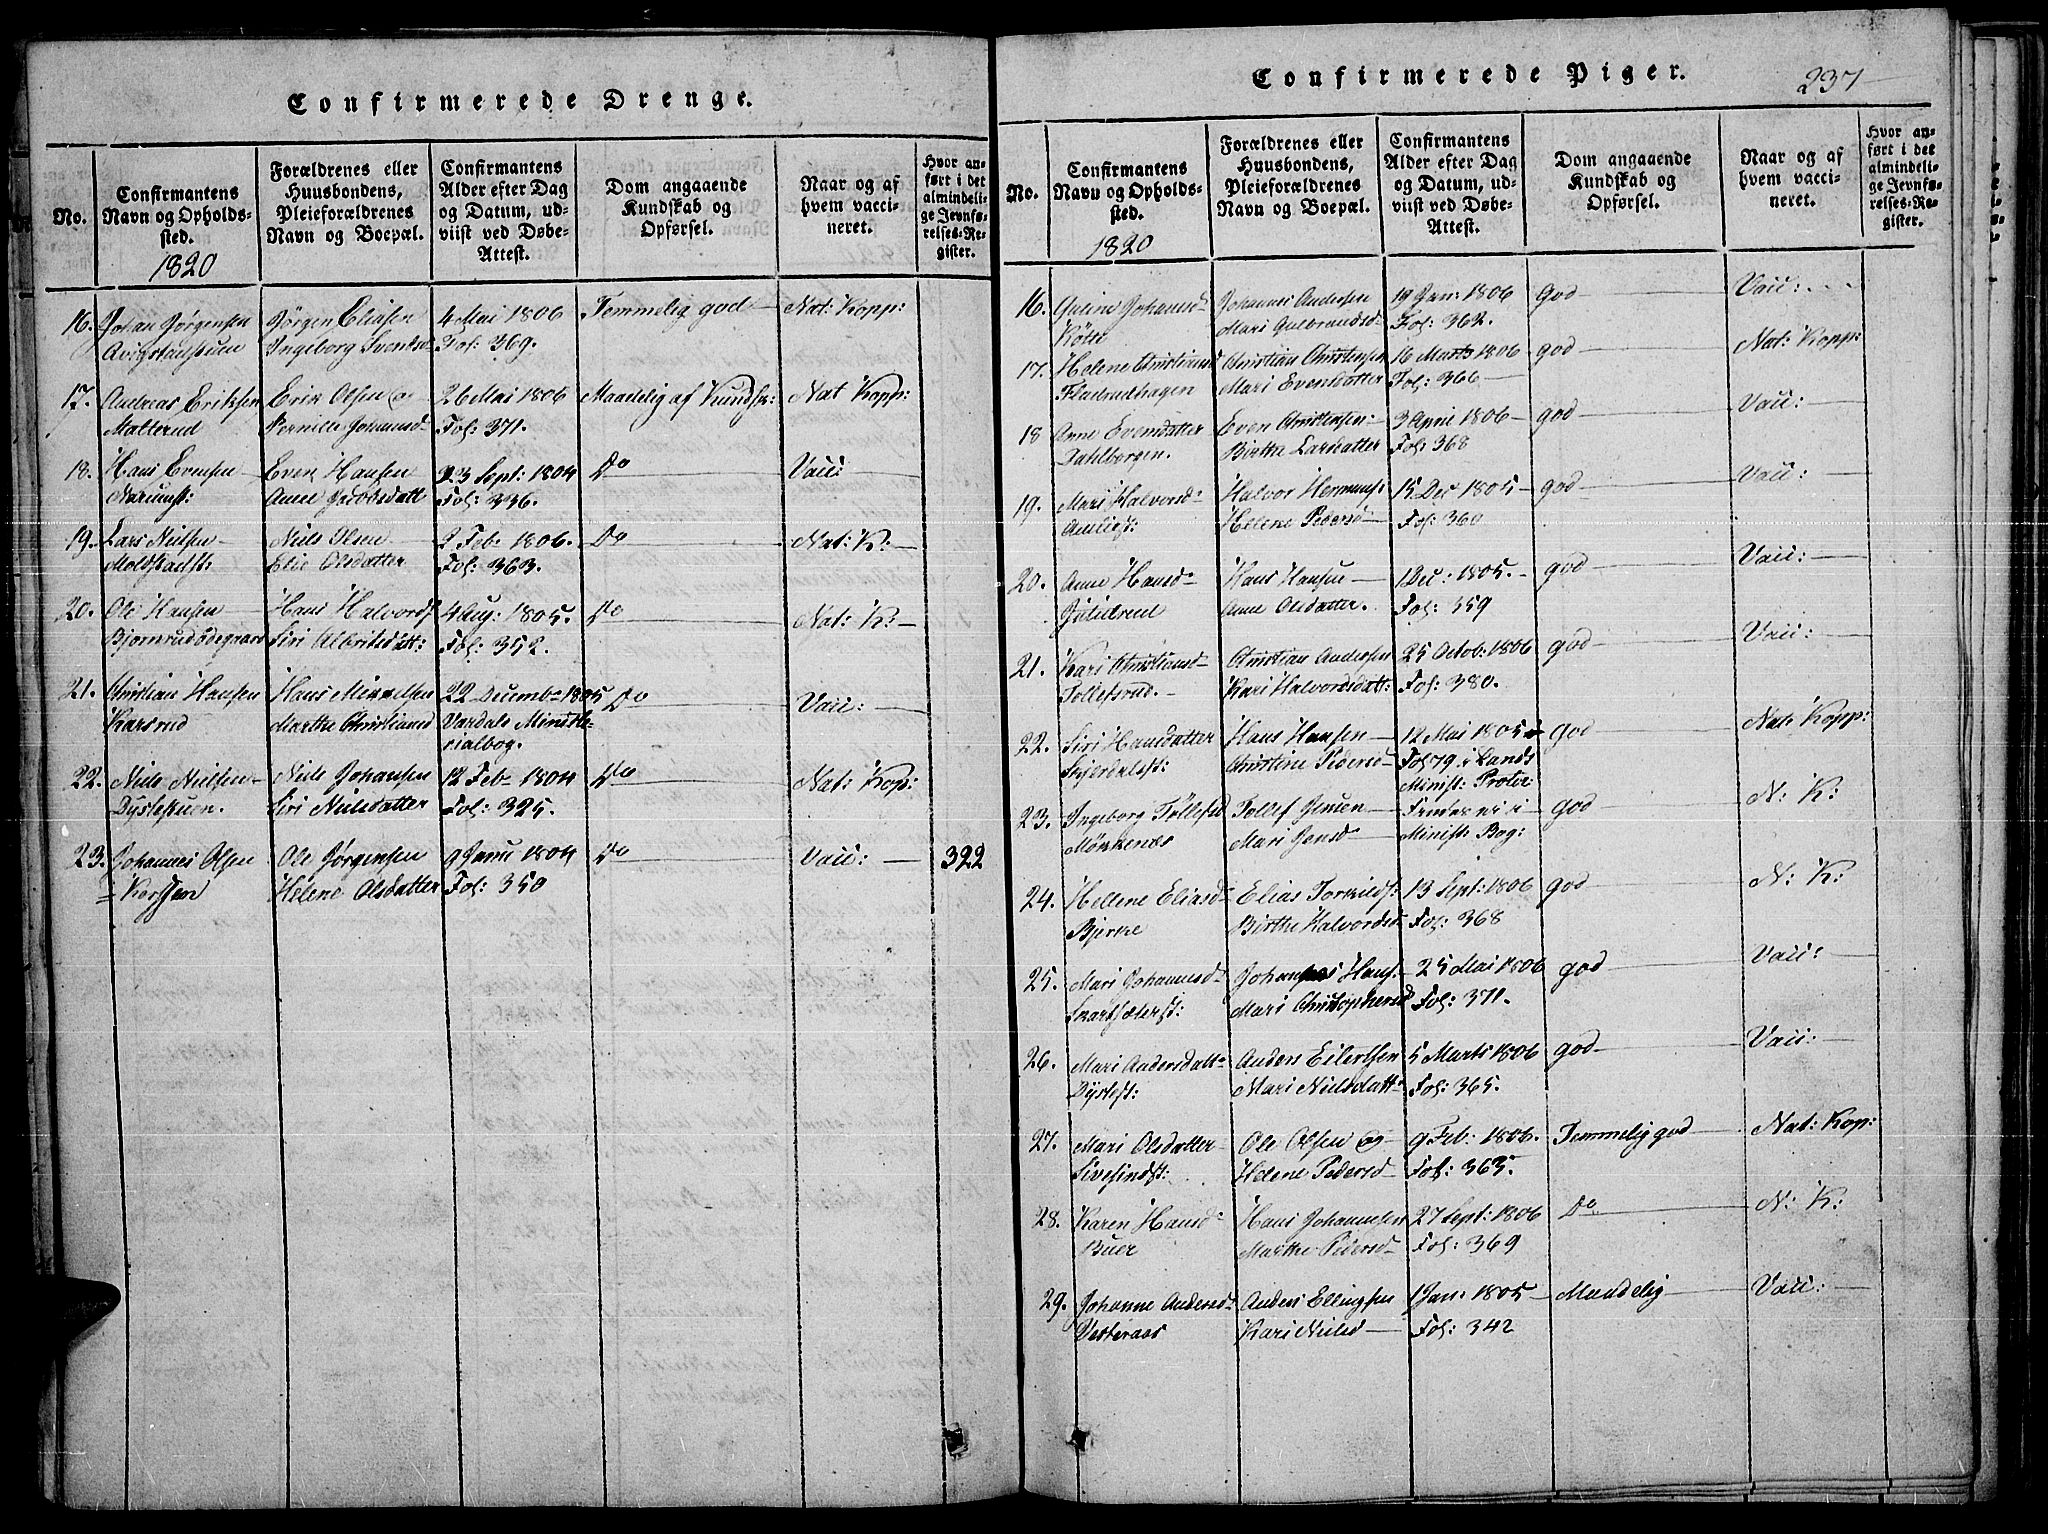 Confirmerede Drenge.
No.
Confirmantens
Navn og Opholds-
sted.
1820
Forældrenes eller
Huusbondens,
Pleieforældrenes
Navn og Boepæl.
Confirmantens
Alder efter Dag
og Datum, ud-
viist ved Døbe-
Attest.
Dom angaaende
Kundskab og
Opførsel.
Naar og af
hvem vacci-
neret.
Hvor an-
ført i det
almindeli-
ge Jevnfø-
relses-Re-
gister.
16. Johan Jørgensen Jørgen Eliasen 4 Mai 1806 Temmelig god Nat: Kopp:
Ingeborg Svendsd Fol: 369.
17. Andreas Eriksen Erik Olsen og 26 Mai 1806 Maadelig af Kundsk: Nat Kopp:
Matterud Pernille Fol: 371.
18. Hans Evensen Even Hansen 23 Sept: 1804 Do Vacc:
Anne Fol: 336.
19. Lars Nielsen Niels Olsen 2 Feb: 1806. Do Nat: K:
Elie Olsdatter Fol: 363.
20. Ole Hansen Hans Halvords: 4 Aug: 1805. Do Nat: K:
Bjørnrudødegaard Siri Albritsdatt: Fol: 352.
21. Christian Hansen Hans Mikkelsen 22 Decemb 1805 Do Vacc:
Karsrud Marthe Christiansd Vardals Ministe-
rialbog.
22. Niels Nielsen Niels Johansen 12 Feb 1804 Do Nat: Kop:
Siri Nielsdatter Fol: 325.
23. Johannes Olsen Ole Jørgensen 9 Janu 1804 Do Vacc: 322
Helene Olsdatter Fol: 350
Confirmerede Piger.
237
No.
Confirmantens
Navn og Opholds-
sted.
1820
Forældrenes eller
Huusbondens,
Pleieforældrenes
Navn og Boepæl.
Confirmantens
Alder efter Dag
og Datum, ud-
viist ved Døbe-
Attest.
Dom angaaende
Kundskab og
Opførsel.
Naar og af
hvem vacci-
neret.
Hvor an-
ført i det
almindeli-
ge Jevnfø-
relses-Re-
gister.
16. Johannesd Johannes Andersen 19 Jan: 1806 god Vacc:
Mari Gulbrandsd Fol: 362.
17. Helene Christiansd Christian Christensen 16 Marts 1806 god Nat: Kopp:
Mari Evensdatter Fol: 366
18 Anne Evensdatter Even Christensen 3 April 1806 god Vacc:
Dahlborgen. Birthe Larsdatter Fol: 368
19. Mari Halvorsd Halvor Hermans: 15 Dec 1805 god Vacc:
Amligst: Helene Pedersd Fol: 360
20. Anne Hansd Hans Hansen 1 Dec: 1805. god Vacc:
Anne Olsdatter. Fol: 359
21. Kari Christiansd Christian Andersen 25 Octob: 1806 god Vacc:
Tollefsrud. Kari Halvordsdatt: Fol: 380.
22. Siri Hansdatter Hans Hansen 12 Mai 1805 god Nat: Kopp:
Skjerdalst: Christine Pedersd Fol 79 i Lands
Minist: Proto:
23. Ingeborg Tollefsd Tollef Jensen Findes ei i god N: K:
Mari Jensd Minist: Bog:
24. Hellene Eliasd Elias Torkilds: 13 Sept: 1806 god N: K:
Bjerke Birthe Halvordsd Fol: 368
25. Mari Johannesd Johannes Hans: 25 Mai 1806 god Vacc:
Mari Christophersd Fol: 371.
26. Mari Andersdatt Anders Eilertsen 5 Marts 1806 god Vacc:
Dystest: Mari Nielsdatt Fol: 365.
27. Mari Olsdatter Ole Olsen og 9 Feb: 1806. Temmelig god Nat: Kop:
Sivesindst: Helene Pedersd Fol: 363.
28. Karen Hansd Hans Johannesen 27 Sept: 1806 Do N: K:
Buer Marthe Pedersd Fol: 369
29. Johanne Andersd: Anders Ellingsen 1 Jan: 1805 Maadelig Vacc:
Vesteraas Kari Nielsd Fol: 342